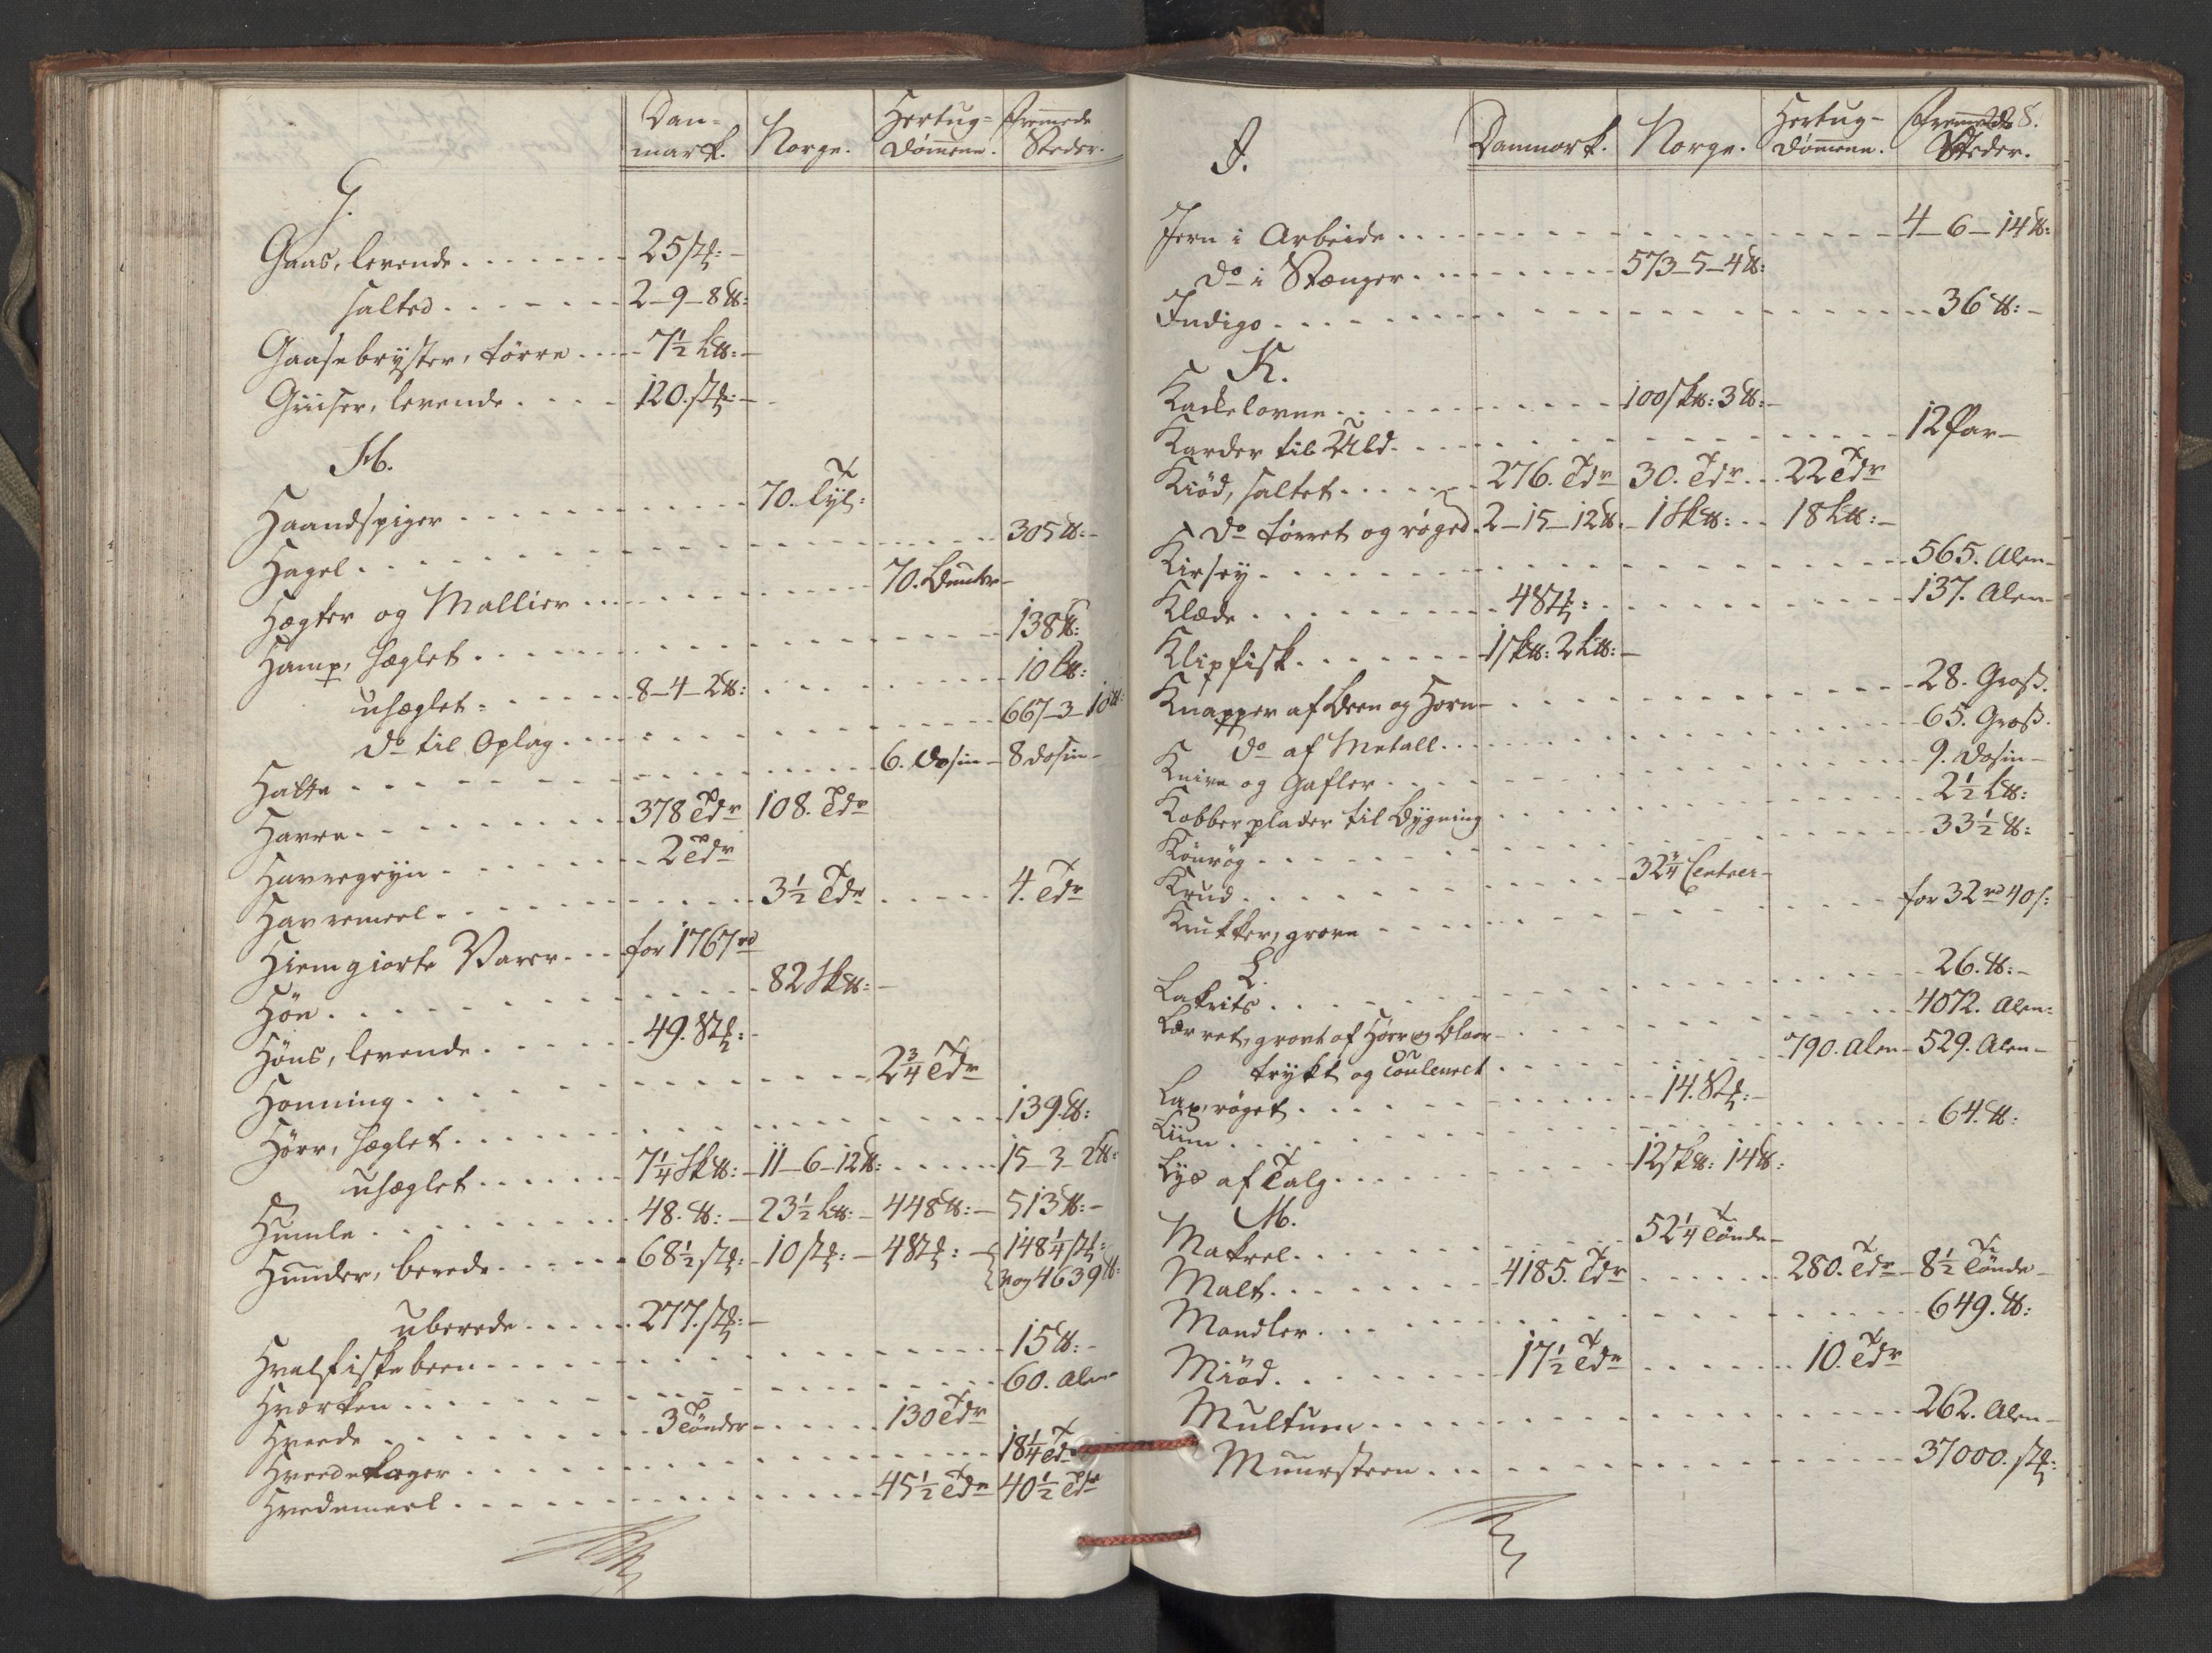 Dan=
mark. Norge. Hertug=
Dømene. Fremede
Steder.
G.
Gaas, levende 25 stk:
salted 2-9-8 ℔:
Gaasebryster, tørre 7½ L℔:
Griiser, levende 120. stk:
H.
Haandspiger 70. Tyl:
Hagel 305 ℔:
Hægter og Mallier 70. Bundter
Hamp, hæglet 138 ℔:
uhæglet 8-4-2 ℔: 10 L℔:
do til Oplag 667-3-10 ℔:
Hatte 6. Dosin 8 Dosin
Havre 378 Tdr 108. Tdr
Havregryn 2 Tdr
Havremeel 3½ Tdr 4. Tdr
Hiemgiorte Varer for 1767 rd
Høe 82 Sk℔:
Høns, levende 49. Stk:
Honning 2¾ Tdr
Hørr, hæglet 139. ℔:
uhæglet 7¼ Sk℔: 11-6-12 ℔: 15-3-2 ℔:
Humle 48. ℔: 23½ L℔: 448 ℔: 513 ℔:
Huuder, berede 68½ stk: 10 stk: 4 Stk: 148¼ stk:
og 4639 ℔:
uberede 277. stk:
Hvalfiskebeen 15 ℔:
Hværken 60. Alen
Hveede 3 Tønder 130 Tdr
Hveedekager 18¼ Td
Hvedemeel 45½ Tdr 40½ Tdr
8.
J. Danmark. Norge. Hertug-
Dømene. Fremede
Steder.
Jern i Arbeide 4-6-14 ℔:
do i Stænger 573-5-4 ℔:
Indigo 36 ℔:
K.
Kackelovne 100 Sk℔: 3 ℔:
Karder til Uld 12 Par
Kiød, saltet 276. Tdr 30. Tdr 22 Tdr
do tørret og røged 2-15-12 ℔. 1 Sk℔: 18 L℔:
Kirsey 565. Alen
Klæde 4 Stk: 137. Alen
Klipfisk 1 Sk℔: 2 L℔:
Knapper af Been og Horn 28. Gross.
do af Metall 65. Gross.
Knive og Gafler 9. Dosin
Kobberplader til Bygning 2½ L℔:
Kønrøg 33½ ℔:
Krud 32¾ Centner
Krukker, grove for 32 rd 40 s:
L.
Lakrits 26. ℔:
Lærret, grovt af Hør og Blaar 4072. Alen:
trykt og Couleuret 790. Alen 529. Alen
Lax, røget 14. Stk:
Liim 64. ℔:
Lys af Talg 12 Sk℔: 14 ℔:
M.
Makrel 52¼ Tønde
Malt 4185. Tdr 280. Tdr 8½ Tønde
Mandler 649. ℔:
Miød 17½ Tdr 10. Tdr
Multum 262. Alen
Muursteen 37000. stk: